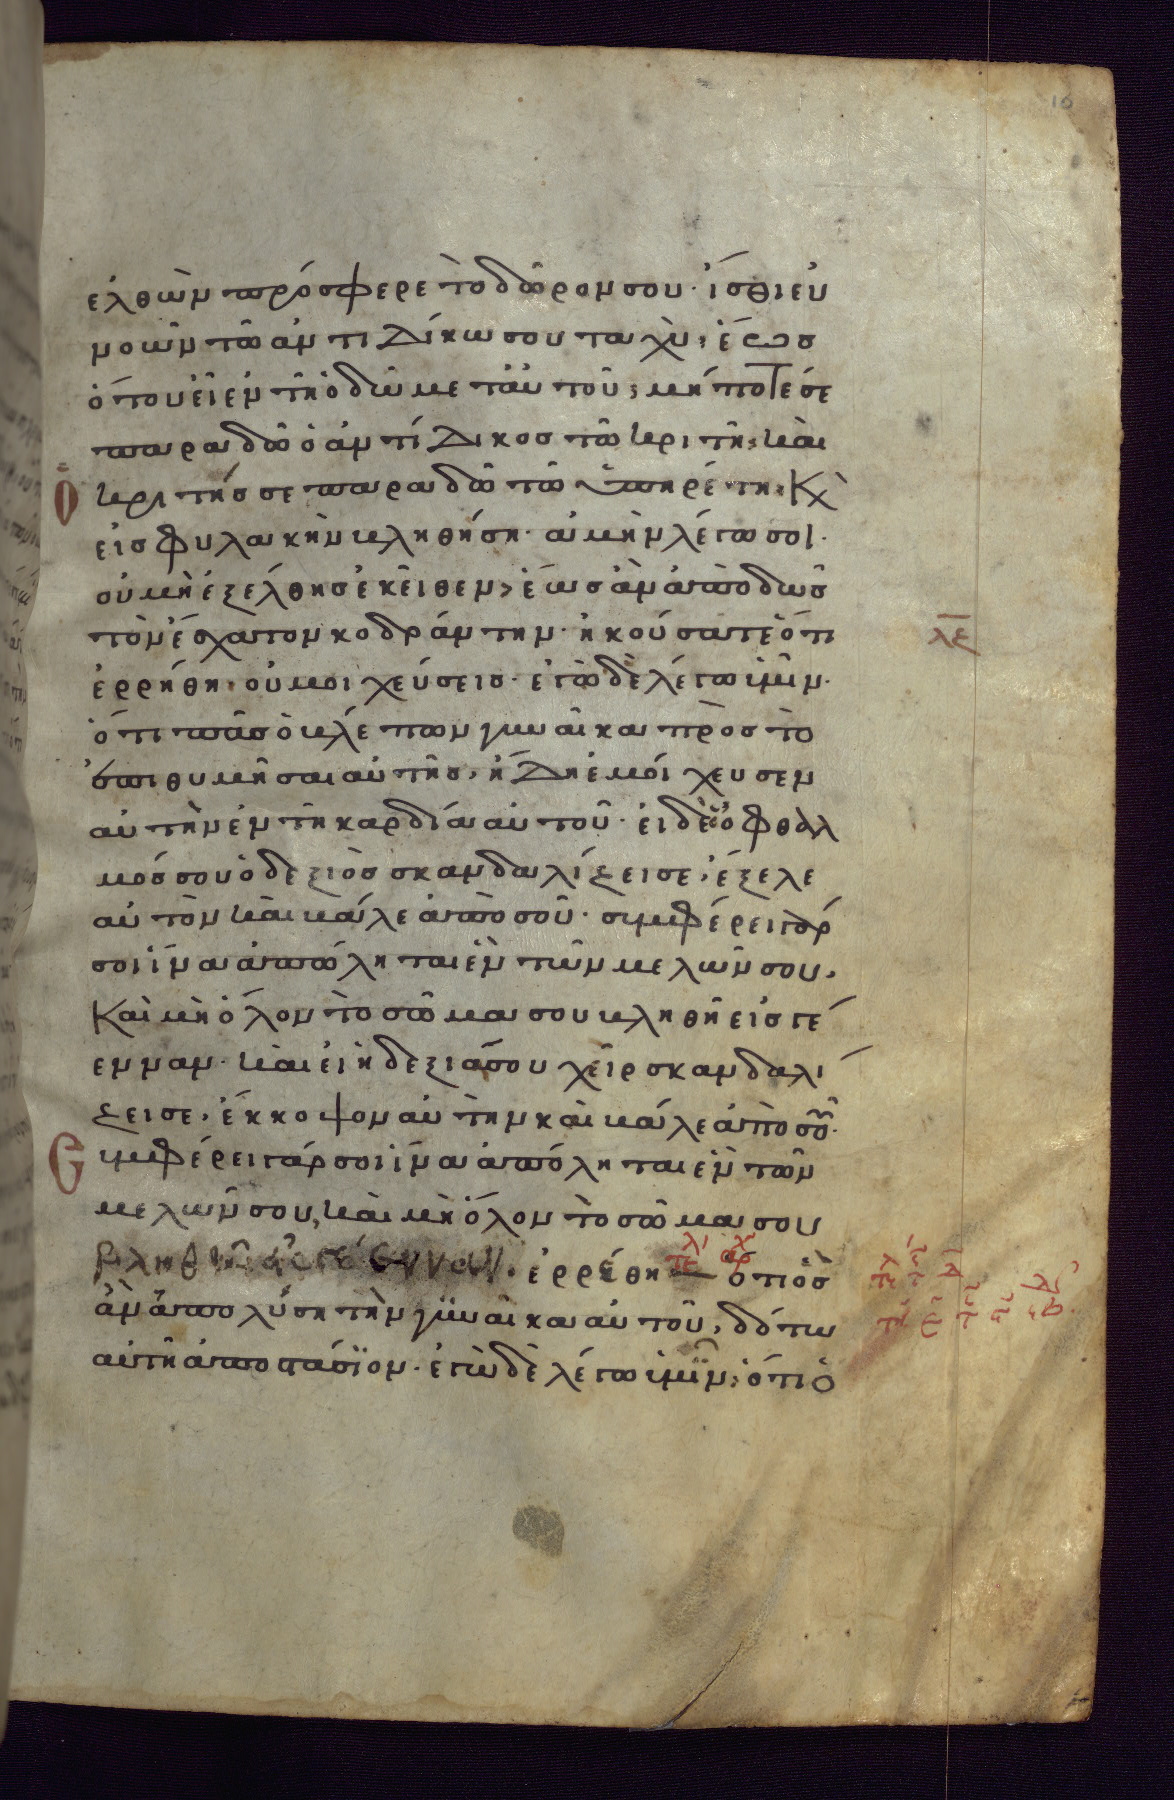 16
ἐλθὼν πρόσφερε τὸ δῶρον σου· ἴσθι εὐ
νοῶν τῶ ἀντιδίκω σου ταχὺ, ἕως
ὅπου εἶ ἐν τῆ ὁδῶ μετ αὐτοῦ, μήποτέ σε
παραδῶ ὁ ἀντίδικος τῶ κριτῆ, καὶ
ὁ κριτής σε παραδῶ τῶ ὑπηρέτη, κ
εἰς φυλακὴν βληθήση· ἀμὴν λέγω σοι·
οὐ μὴ ἐξέλθης ἐκεῖθεν, ἕως ἂν ἀποδῶς
τὸν ἔσχατον κοδράντην· ἠκούσατε ὅτι
λε
ἐρρήθη· οὐ μοιχεύσεις· ἐγὼ δὲ λέγω ὑμῖν·
ὅτι πᾶς ὁ βλέπων γυναῖκα πρὸς τὸ
ἐπιθυμῆσαι αὐτῆς, ἤδη ἐμοίχευσεν
αὐτὴν ἐν τῆ καρδία αὐτοῦ· εἰ δὲ ὁ ὀφθαλ
μός σου ὁ δεξιὸς σκανδαλίζει σε, ἔξελε
αὐτὸν καὶ βάλε ἀπὸ σοῦ· συμφέρει γάρ
σοι ἵνα ἀπόληται ἓν τῶν μελῶν σου,
καὶ μὴ ὅλον τὸ σῶμα σου βληθῆ εἰς γέ
ενναν· καὶ εἰ ἡ δεξιά σου χεῖρ σκανδαλί
ζει σε, ἔκκοψον αὐτὴν καὶ βάλε ἀπὸ σοῦ·
Συμφέρει γάρ σοι ἵνα ἀπόληται ἓν τῶν
μελῶν σου, καὶ μὴ ὅλον τὸ σῶμα σου
βληθῆ εἰς γέενναν· ἐρρέθη ὅτι ὃς
ἂν ἀπολύση τὴν γυναῖκα αὐτοῦ, δότω
αὐτῆ ἀποστάσιον· ἐγὼ δὲ λέγω ὑμῖν, ὅτι ὁ